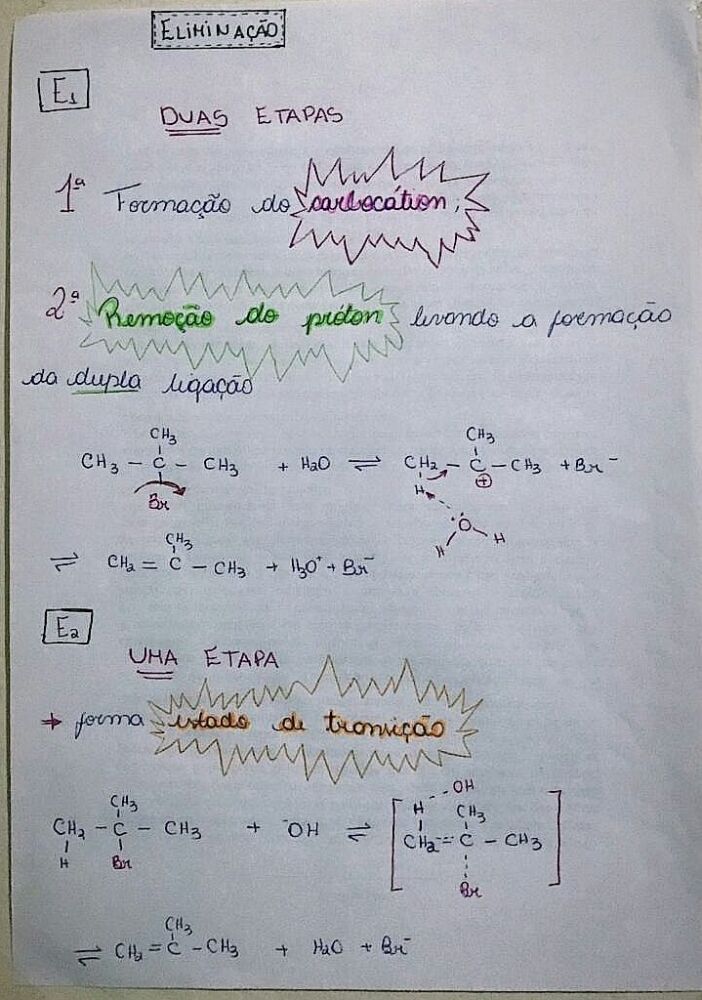 ELIMINAÇÃO
E₁
DUAS ETAPAS
1ª Formação do carbocátion;
2ª Remoção do próton levando a formação
da dupla ligação
CH₃
CH₃ – C – CH₃ + H₂O ⇌ CH₂ – C – CH₃ + Br⁻
CH₃
Br
H ⊕
O
H H
CH₃
⇌ CH₂ = C – CH₃ + H₃O⁺ + Br⁻
E₂
UMA ETAPA
→ forma estado de transição
H --- OH
CH₃ CH₃
CH₂ – C – CH₃ + ⁻OH ⇌ [CH₂ = C – CH₃]
H Br
Br
CH₃
⇌ CH₂ = C – CH₃ + H₂O + Br⁻